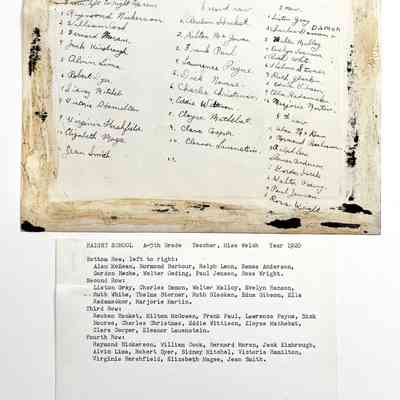 1. Raymond Nickerson
2. William Cook
3. Bernard Moran
4. Jack Kimbrough
5. Alvin Lima
6. Robert
7. Sidney Mitchel
8. Victoria Hamilton
9. Virginia Hershfield
10. Elizabeth Magee
Jean Smith
2nd row
1. Reuben Hacket
2. Hilton McGowen
3. Frank Paul
4. Lawrence Payne
5. Dick
6. Charles Christmas
7. Eddie
8. Clayre Mothebat
9. Clara Cooper
10. Eleanor Lauenstein
11.
3 row
Liston Gray
Charles Damon DAMON
Walter Malloy
Evelyn Hanson
Ruth White
Thelma Storner
Ruth
Edna Gibson
Ella Redamacker
Marjorie Martin
4th row
Alan McKeen
Normond Barbour
Ralph Leon
James Anderson
Gordon Hecke
Walter
Paul Jensen
Rosa Wright
HAIGHT SCHOOL A-5th Grade Teacher, Miss Welsh Year 1920
Bottom Row, left to right:
Alan McKeen, Normond Barbour, Ralph Leon, Remes Anderson,
Gordon Hecke, Walter Oeding, Paul Jensen, Rosa Wright.
Second Row:
Liston Gray, Charles Demon, Walter Malloy, Evelyn Hanson,
Ruth White, Thelma Storner, Ruth Glocken, Edna Gibson, Ella
Redamacker, Marjorie Martin.
Third Row:
Reuben Hacket, Hilton McGowen, Frank Paul, Lawrence Payne, Dick
Nourse, Charles Christmas, Eddie Wittison, Clayre Mothebat,
Clara Cooper, Eleanor Lauenstein.
Fourth Row:
Raymond Nickerson, William Cook, Bernard Moran, Jack Kimbrough,
Alvin Lima, Robert Dyer, Sidney Mitchel, Victoria Hamilton,
Virginia Hershfield, Elizabeth Magee, Jean Smith.